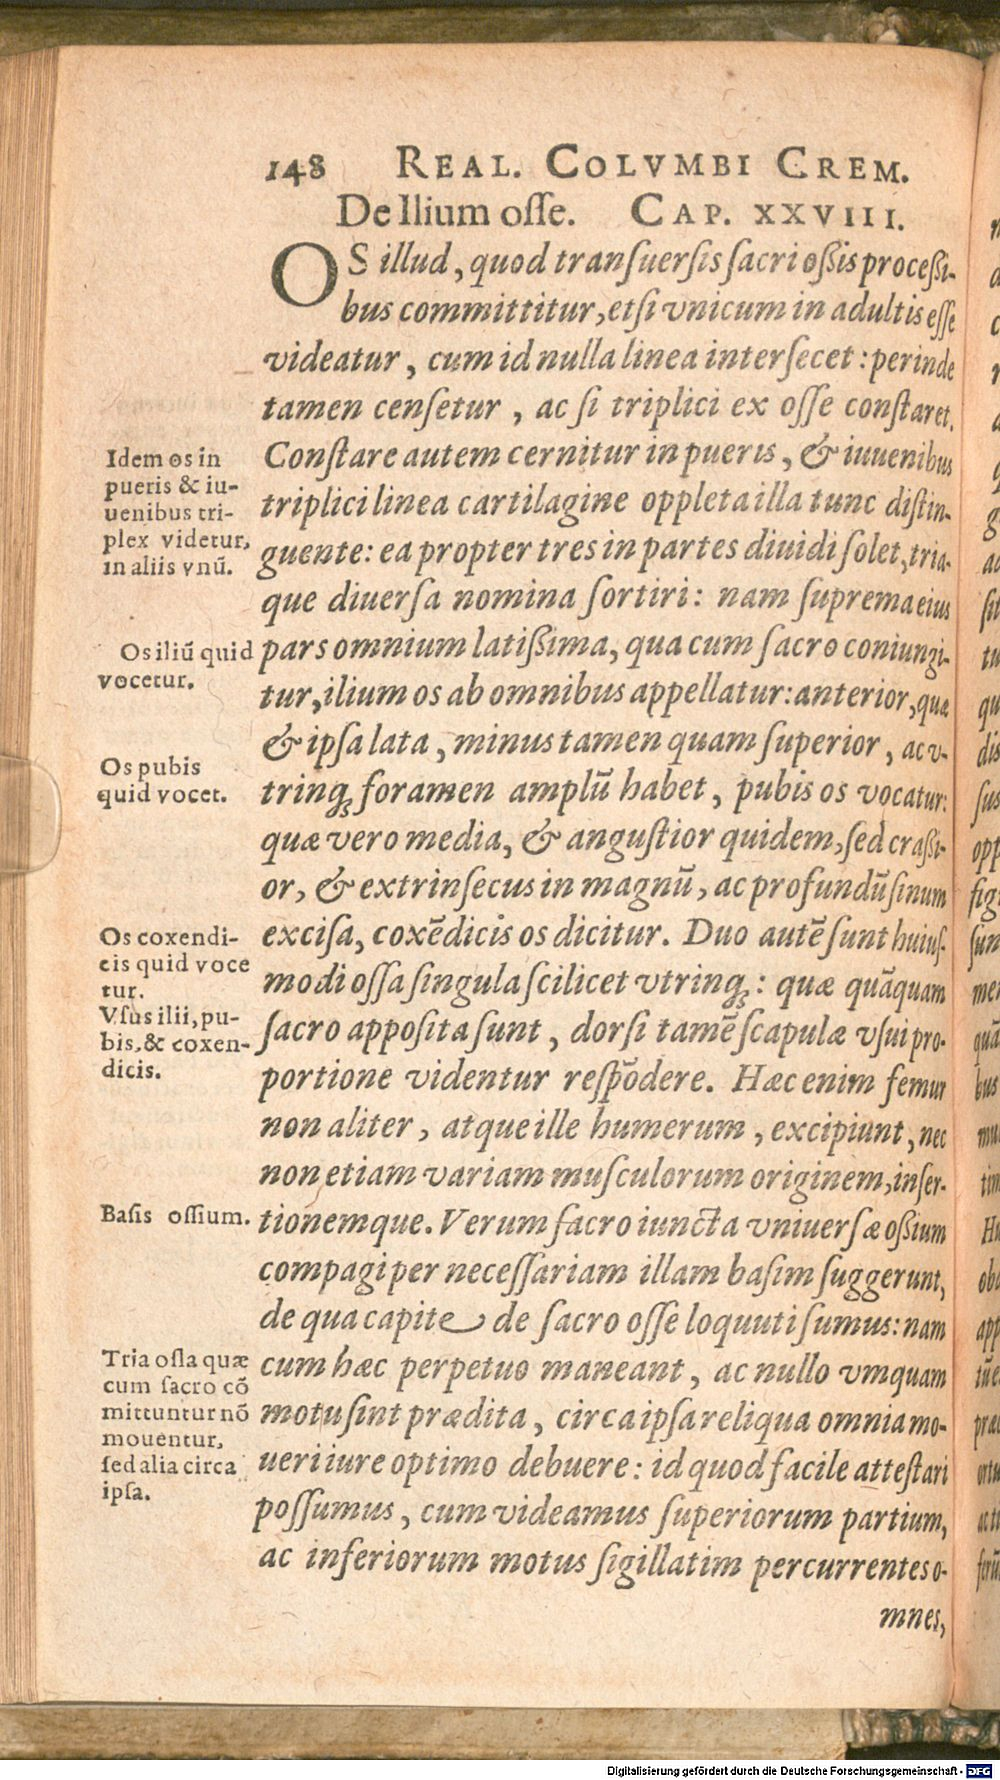 148 REAL. COLVMBI CREM.
De Ilium osse. CAP. XXVIII.
OS illud, quod transuersis sacri ossis processi-
bus committitur, etsi vnicum in adultis esse
videatur, cum id nulla linea intersecet: perinde
tamen censetur, ac si triplici ex osse constaret.
Constare autem cernitur in pueris, & iuuenibus
triplici linea cartilagine oppleta illa tunc distin-
guente: ea propter tres in partes diuidi solet, tria-
que diuersa nomina sortiri: nam suprema eius
pars omnium latissima, qua cum sacro coniungi-
tur, ilium os ab omnibus appellatur: anterior, quæ
& ipsa lata, minus tamen quam superior, ac v-
trinq; foramen amplũ habet, pubis os vocatur:
quæ vero media, & angustior quidem, sed crassi-
or, & extrinsecus in magnũ, ac profundũ sinum
excisa, coxẽdicis os dicitur. Duo autẽ sunt huius-
modi ossa singula scilicet vtrinq;: quæ quãquam
sacro apposita sunt, dorsi tamẽ scapulæ vsui pro-
portione videntur respõdere. Hæc enim femur
non aliter, atque ille humerum, excipiunt, nec
non etiam variam musculorum originem, inser-
tionemque. Verum sacro iuncta vniuersæ ossium
compagi per necessariam illam basim suggerunt,
de qua capite de sacro osse loquuti sumus: nam
cum hæc perpetuo maneant, ac nullo vmquam
motu sint prædita, circa ipsa reliqua omnia mo-
ueri iure optimo debuere: id quod facile attestari
possumus, cum videamus superiorum partium,
ac inferiorum motus sigillatim percurrentes o-
mnes,
Idem os in
pueris & iu-
uenibus tri-
plex videtur,
in aliis vnũ.
Os iliũ quid
vocetur.
Os pubis
quid vocet.
Os coxendi-
cis quid voce
tur.
Vsus ilii, pu-
bis, & coxen-
dicis.
Basis ossium.
Tria ossa quæ
cum sacro cõ
mittuntur nõ
mouentur,
sed alia circa
ipsa.
Digitalisierung gefördert durch die Deutsche Forschungsgemeinschaft - DFG